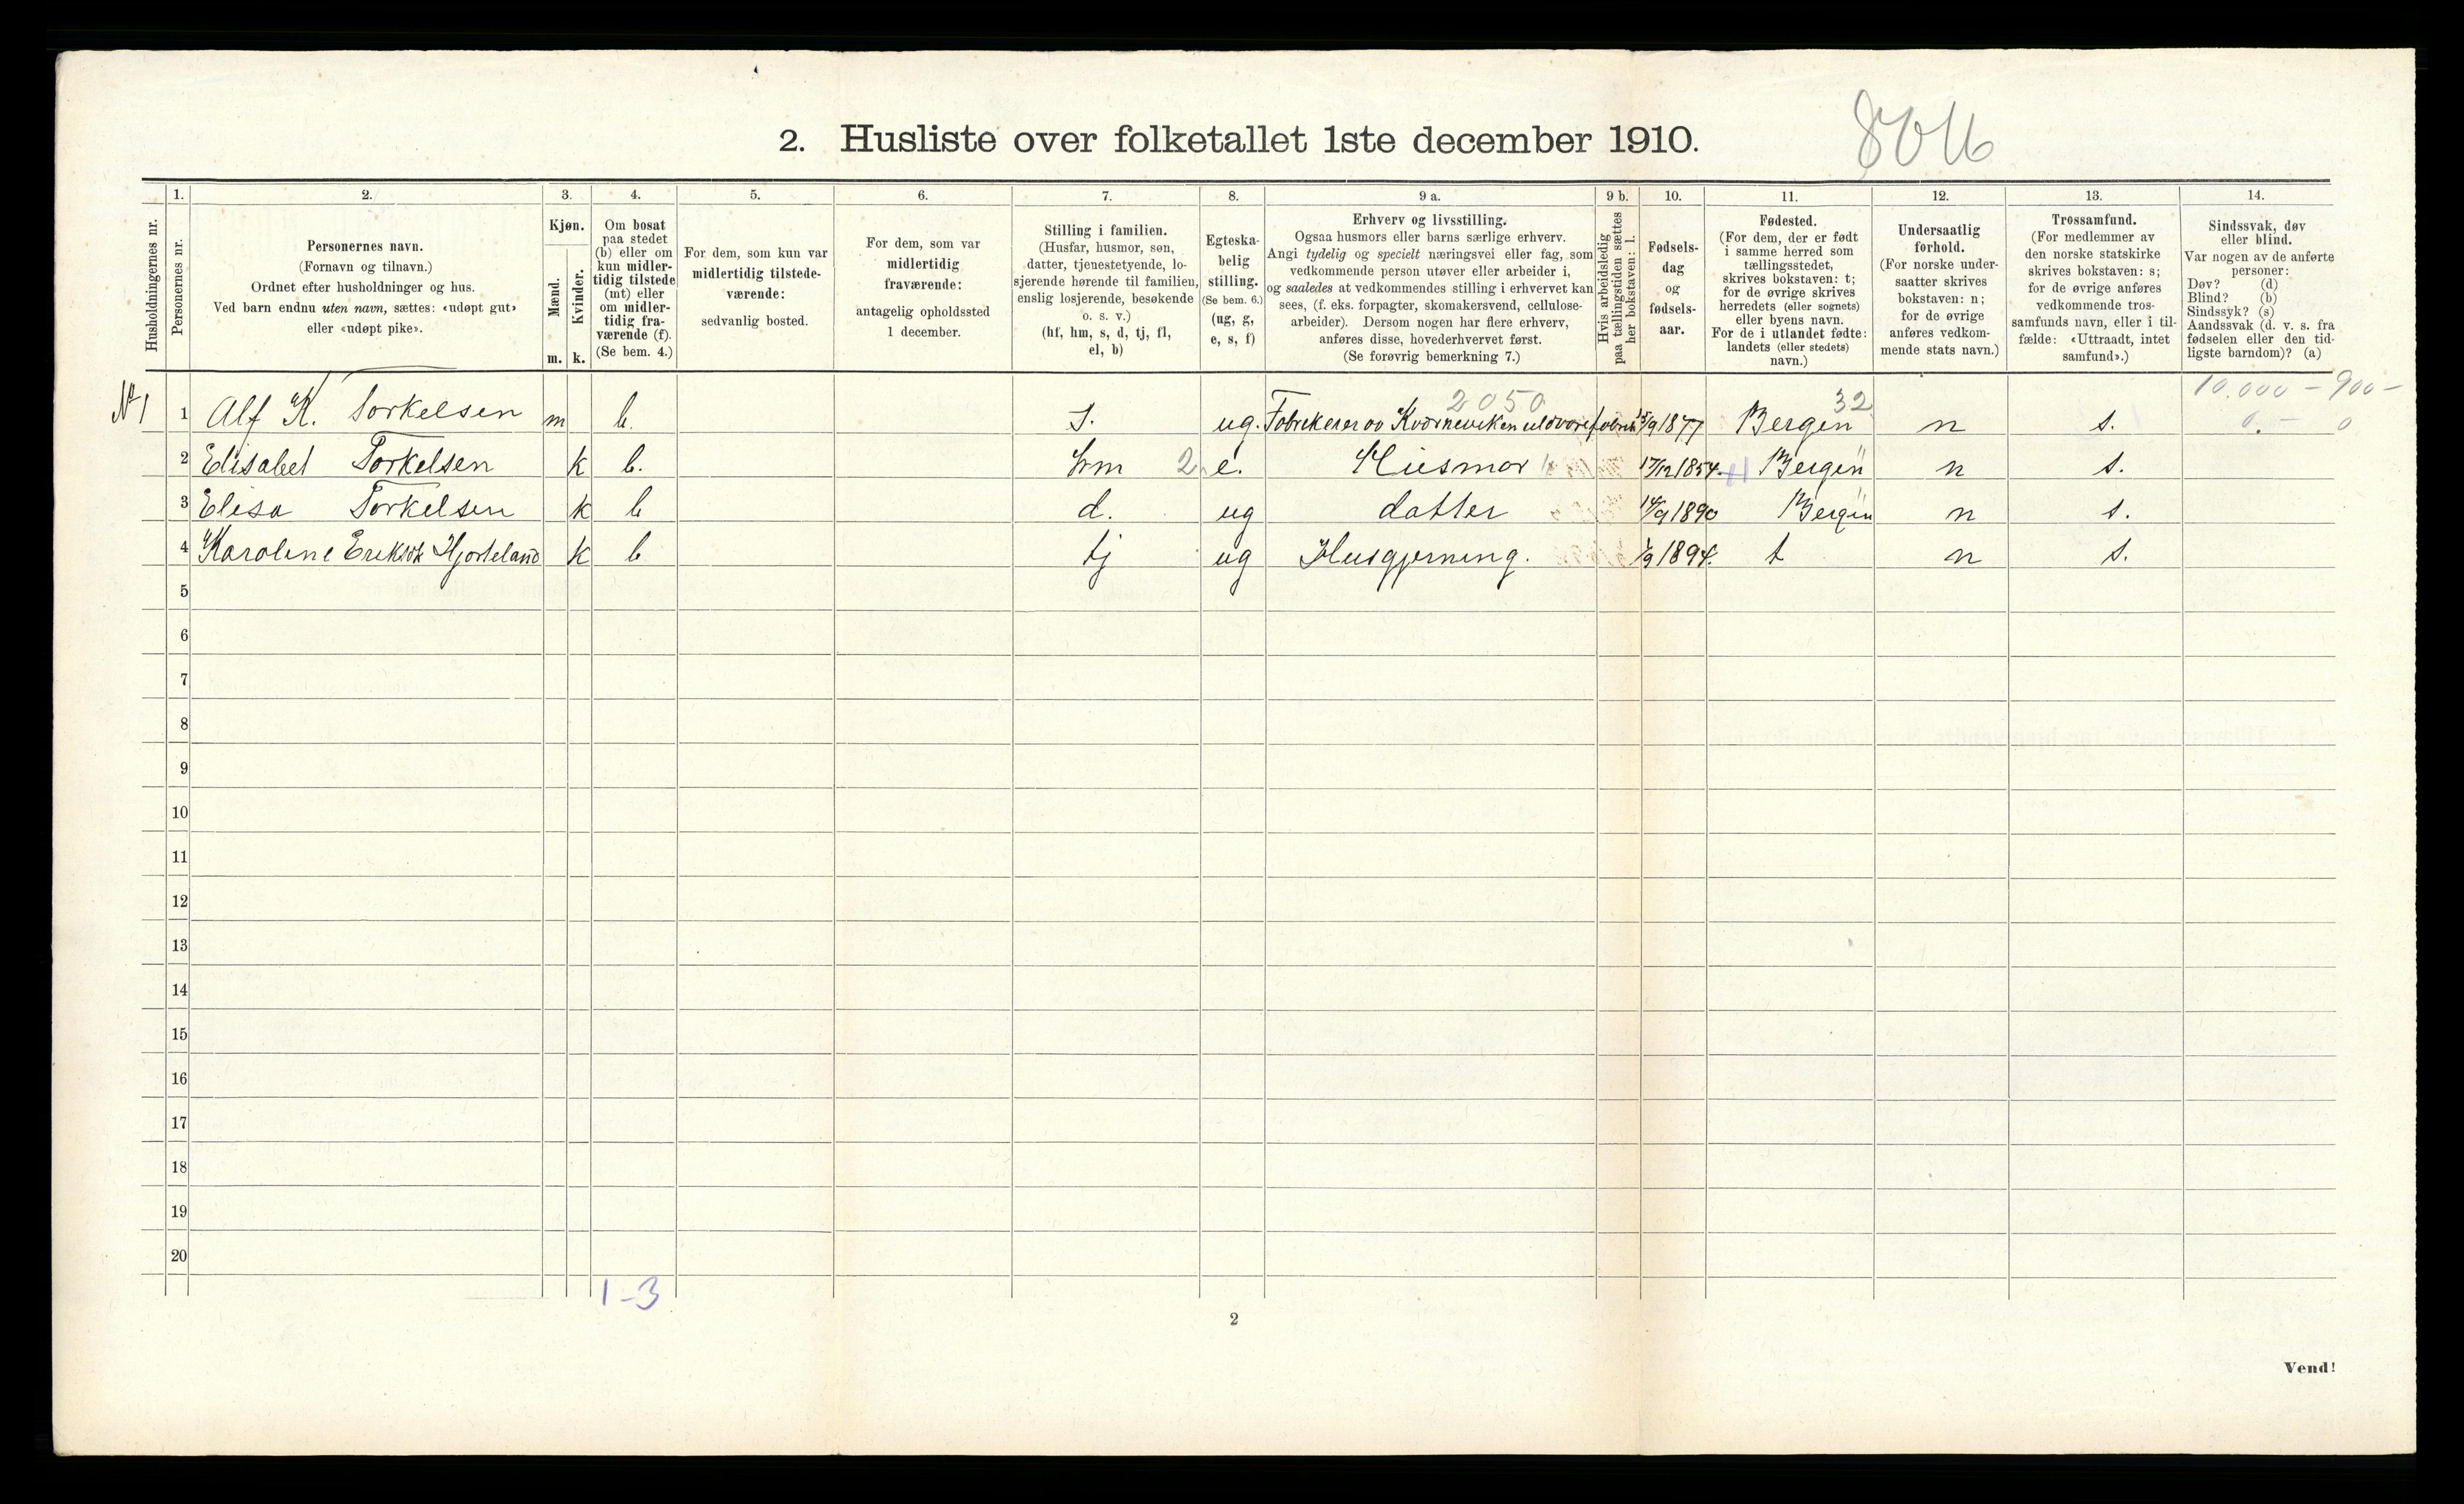 2. Husliste over folketallet 1ste december 1910.
Husholdningernes nr.
1.
Personernes nr.
2.
Personernes navn.
(Fornavn og tilnavn.)
Ordnet efter husholdninger og hus.
Ved barn endnu uten navn, sættes: «udøpt gut»
eller «udøpt pike».
3.
Kjøn.
Mænd.
Kvinder.
m. k.
4.
Om bosat
paa stedet
(b) eller om
kun midler-
tidig tilstede
(mt) eller
om midler-
tidig fra-
værende (f).
(Se bem. 4.)
5.
For dem, som kun var
midlertidig tilstede-
værende:
sedvanlig bosted.
6.
For dem, som var
midlertidig
fraværende:
antagelig opholdssted
1 december.
7.
Stilling i familien.
(Husfar, husmor, søn,
datter, tjenestetyende, lo-
sjerende hørende til familien,
enslig losjerende, besøkende
o. s. v.)
(hf, hm, s, d, tj, fl,
el, b)
8.
Egteska-
belig
stilling.
(Se bem. 6.)
(ug, g,
e, s, f)
9 a.
Erhverv og livsstilling.
Ogsaa husmors eller barns særlige erhverv.
Angi tydelig og specielt næringsvei eller fag, som
vedkommende person utøver eller arbeider i,
og saaledes at vedkommendes stilling i erhvervet kan
sees, (f. eks. forpagter, skomakersvend, cellulose-
arbeider). Dersom nogen har flere erhverv,
anføres disse, hovederhvervet først.
(Se forøvrig bemerkning 7.)
9 b.
Hvis arbeidsledig
paa tællingstiden sættes
her bokstaven: l.
10.
Fødsels-
dag
og
fødsels-
aar.
11.
Fødested.
(For dem, der er født
i samme herred som
tællingsstedet,
skrives bokstaven: t;
for de øvrige skrives
herredets (eller sognets)
eller byens navn.
For de i utlandet fødte:
landets (eller stedets)
navn.)
12.
Undersaatlig
forhold.
(For norske under-
saatter skrives
bokstaven: n;
for de øvrige
anføres vedkom-
mende stats navn.)
13.
Trossamfund.
(For medlemmer av
den norske statskirke
skrives bokstaven: s;
for de øvrige anføres
vedkommende tros-
samfunds navn, eller i til-
fælde: «Uttraadt, intet
samfund».)
14.
Sindssvak, døv
eller blind.
Var nogen av de anførte
personer:
Døv? (d)
Blind? (b)
Sindssyk? (s)
Aandssvak (d. v. s. fra
fødselen eller den tid-
ligste barndom)? (a)
2050 32 10.000 - 900 -
№ 1 1 Alf K. Torkelsen m b. s. ug. Fabrikeier av Kverneviken uldvarefabrik 15/9 1877 Bergen n s. 0. - 0
2 Elisabet Torkelsen k b. hm 2 e. Husmor 17/12 1854. Bergen n s.
3 Elisa Torkelsen k b d. ug datter 14/9 1890 Bergen n s.
4 Karoline Eriksdt Hjorteland k b tj ug Husgjerning. 1/9 1894. t n s.
5
6
7
8
9
10
11
12
13
14
15
16
17
18
19
20
1 - 3
2
Vend!